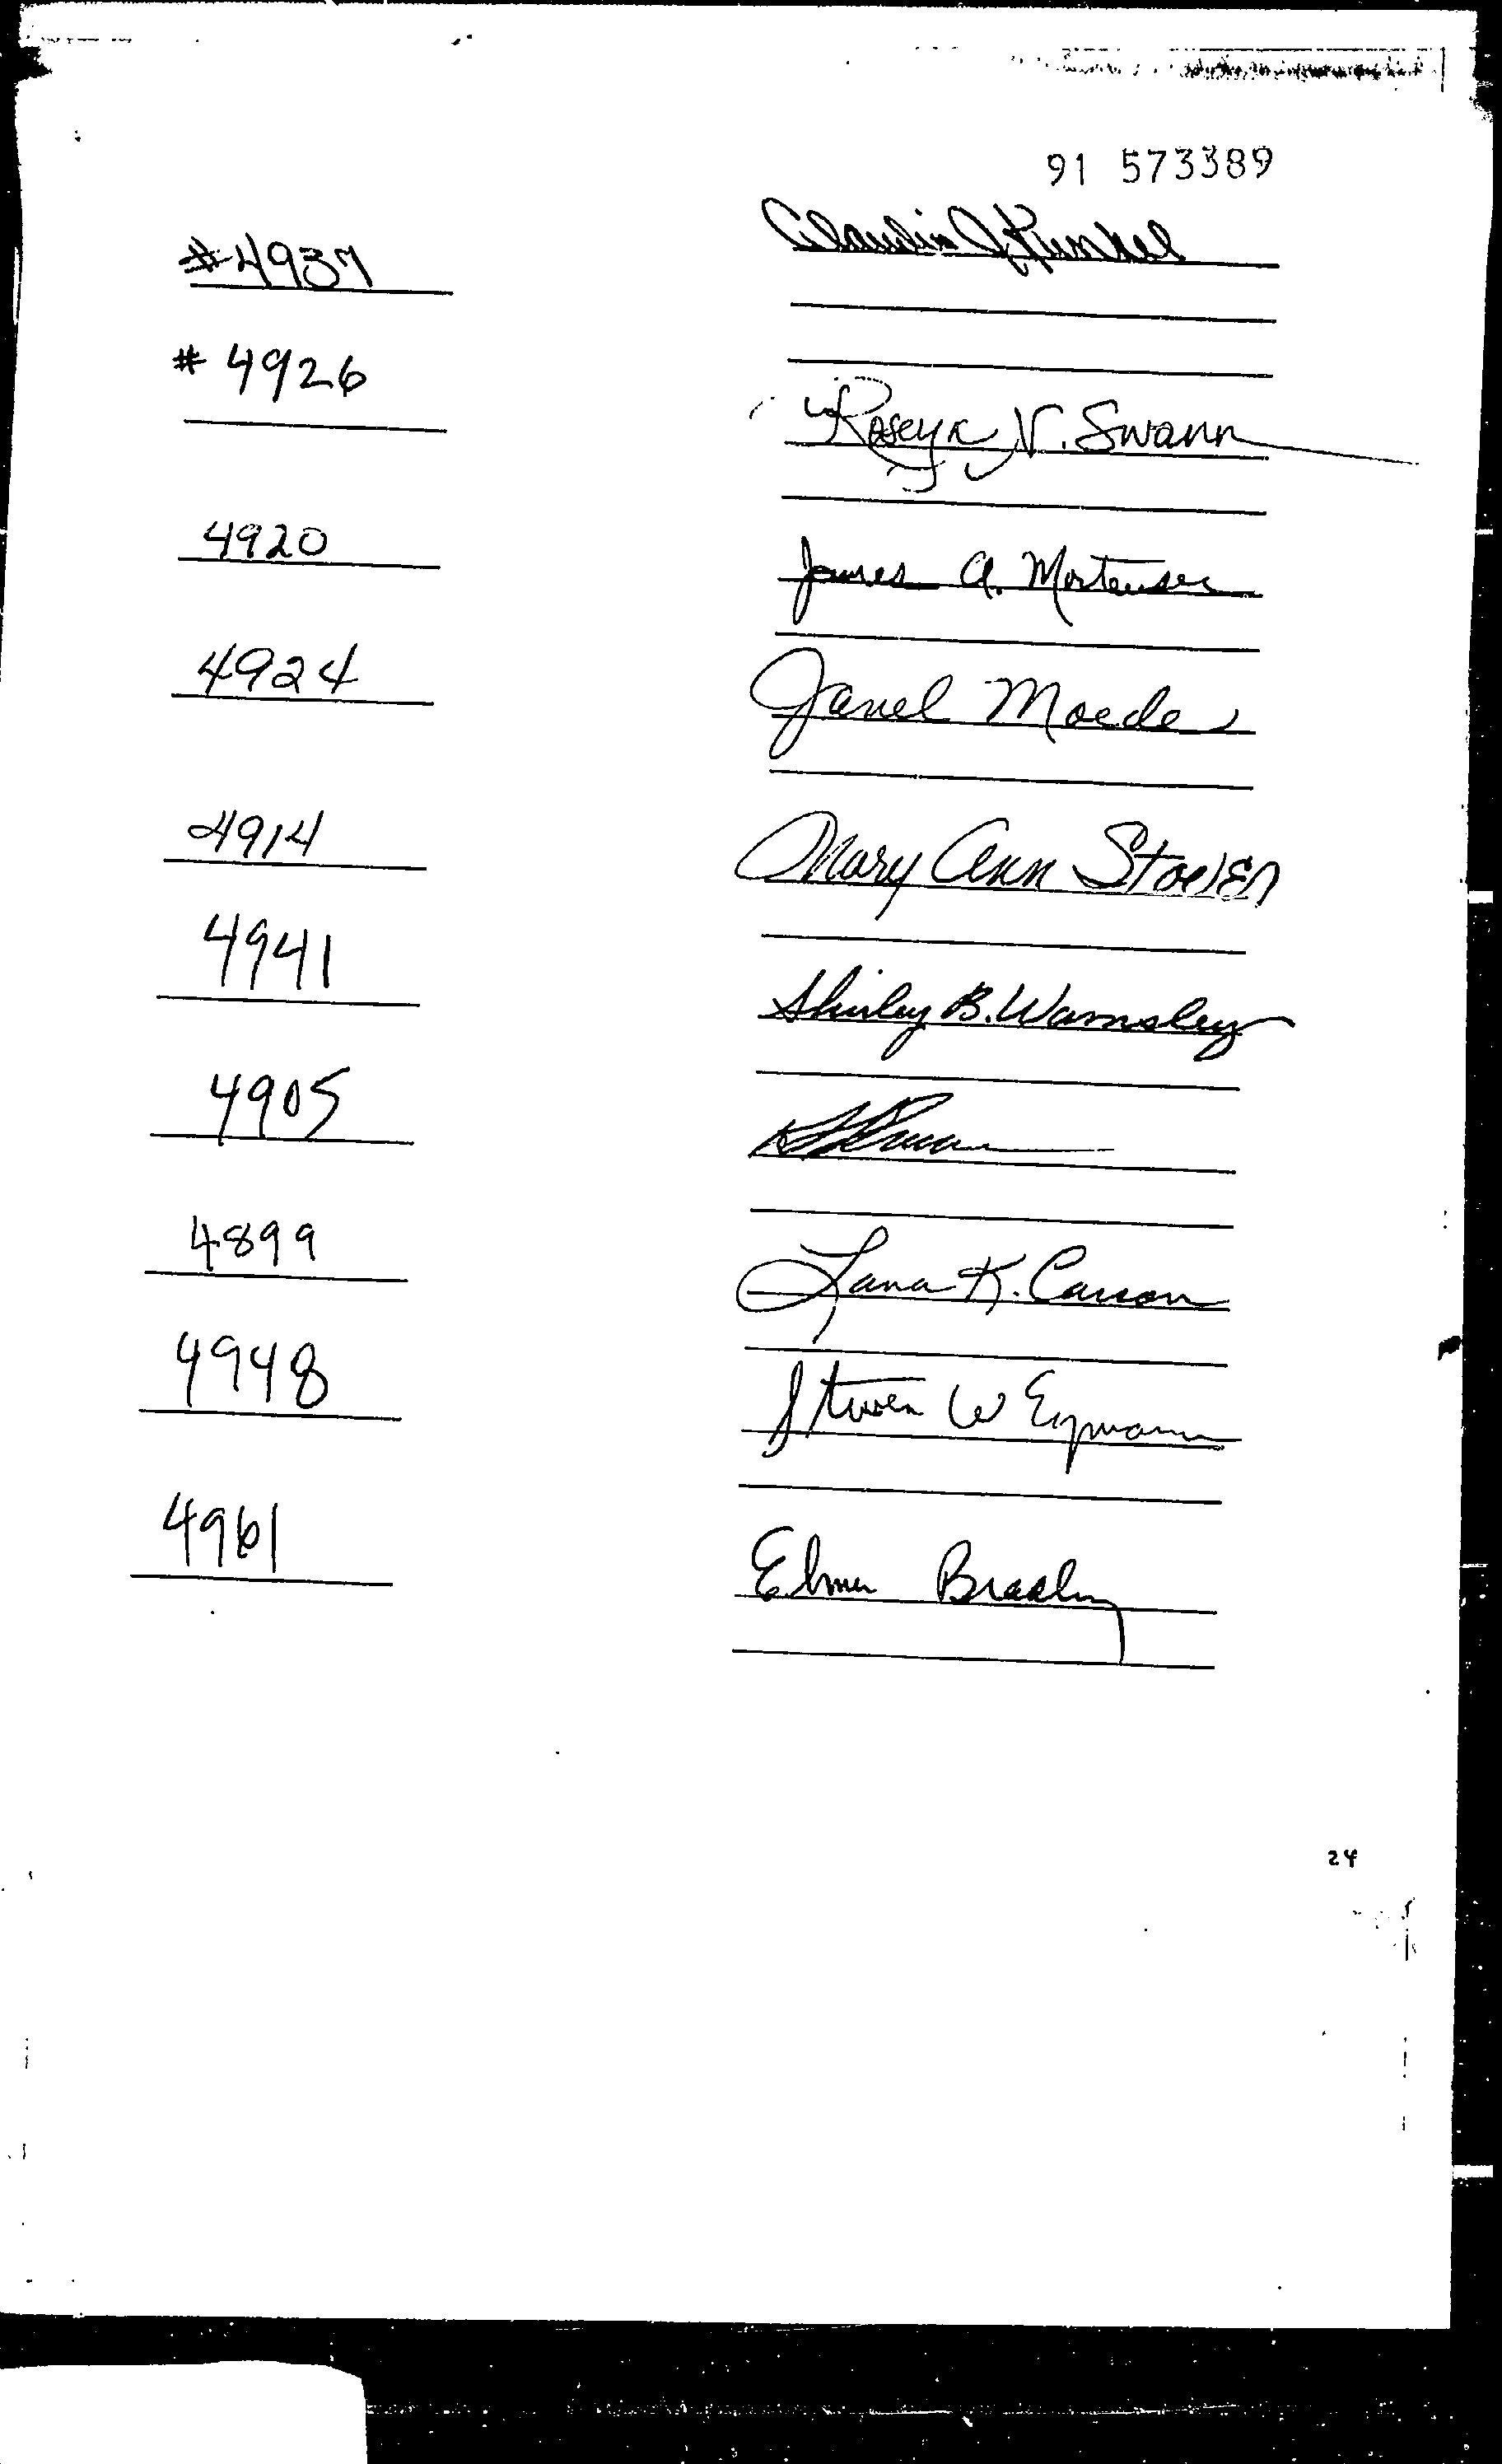 91 573389
#4937 Claudia J Kunkel
# 4926
V. Swann
4920 James A. Mortensen
4924 Janel Moede
4914 Mary Ann Stoever
4941 Shirley B. Wamsley
4905
4899 Lana K. Carson
4948 Steven W Eymann
4961 Elmer Bradley
24